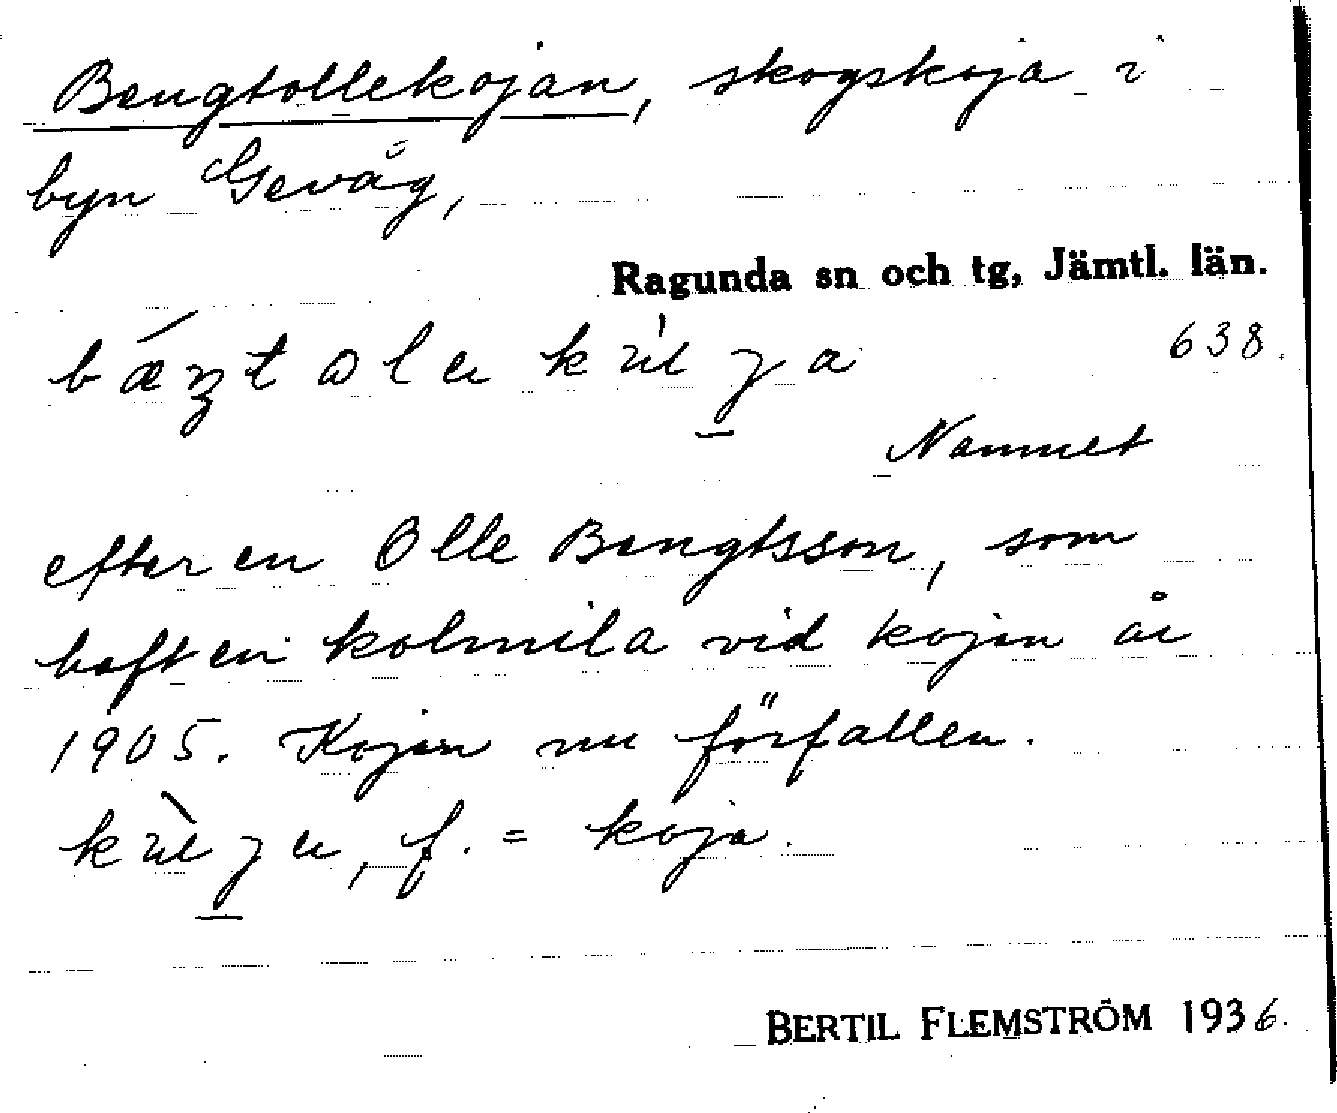 Bengtollekojan, skogskoja i
byn Gevåg,
Ragunda sn och tg, Jämtl. län.
638.
Namnet
efter en Olle Bengtsson, som
haft en kolmila vid kojan år
1905. Kojan nu förfallen.
f. = koja.
BERTIL FLEMSTRÖM 1936.